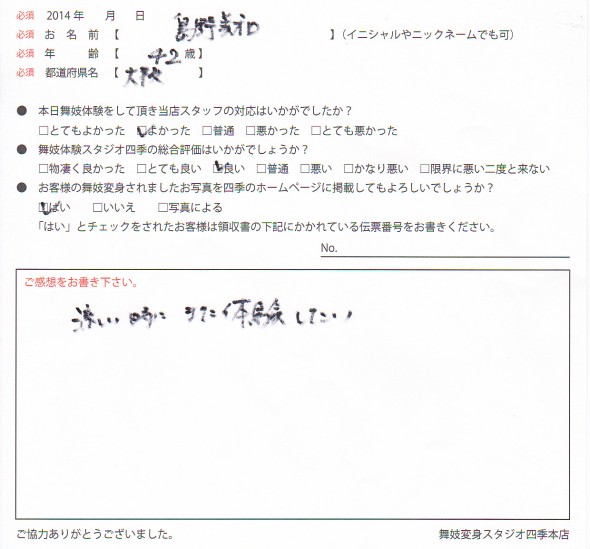 必須 2014年 月 日
必須 お名前【島野義和】(イニシャルやニックネームでも可)
必須 年齢【42歳】
必須 都道府県名【大阪】
● 本日舞妓体験をして頂き当店スタッフの対応はいかがでしたか？
□とてもよかった ☑よかった □普通 □悪かった □とても悪かった
● 舞妓体験スタジオ四季の総合評価はいかがでしょうか？
□物凄く良かった □とても良い ☑良い □普通 □悪い □かなり悪い □限界に悪い二度と来ない
● お客様の舞妓変身されましたお写真を四季のホームページに掲載してもよろしいでしょうか？
☑はい □いいえ □写真による
「はい」とチェックをされたお客様は領収書の下記にかかれている伝票番号をお書きください。
No.
ご感想をお書き下さい。
涼しい時に また体験したい
ご協力ありがとうございました。
舞妓変身スタジオ四季本店